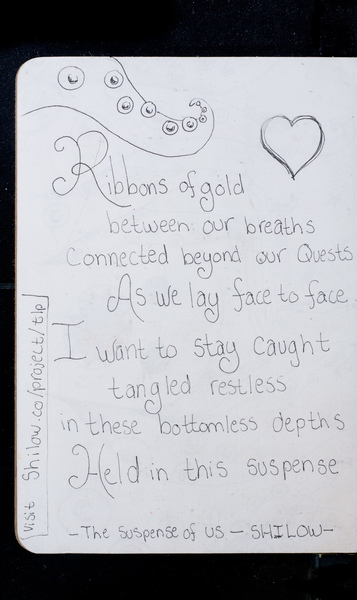 Ribbons of gold
between our breaths
Connected beyond our Quests
As we lay face to face
I want to stay caught
tangled restless
in these bottomless depths
Held in this suspense
-The suspense of us - SHILOW-
Visit Shilow.co/project/tlp